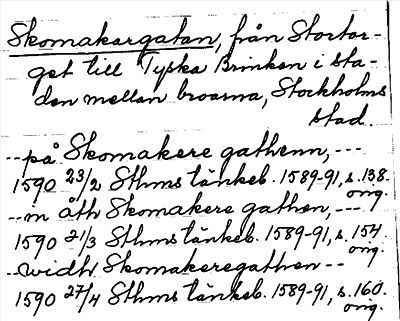 Skomakargatan, från Stortor-
get till Tyska Brinken i sta-
den mellan broarna, Stockholms
stad.
--på Skomakere gathenn,---
1590 23/2 Sthms tänkeb. 1589-91, s. 138.
orig.
--m åth Skomakere gathen,---
1590 21/3 Sthms tänkeb. 1589-91, s. 154.
orig.
--widh Skomakeregathen--
1590 27/4 Sthms tänkeb. 1589-91, s. 160.
orig.